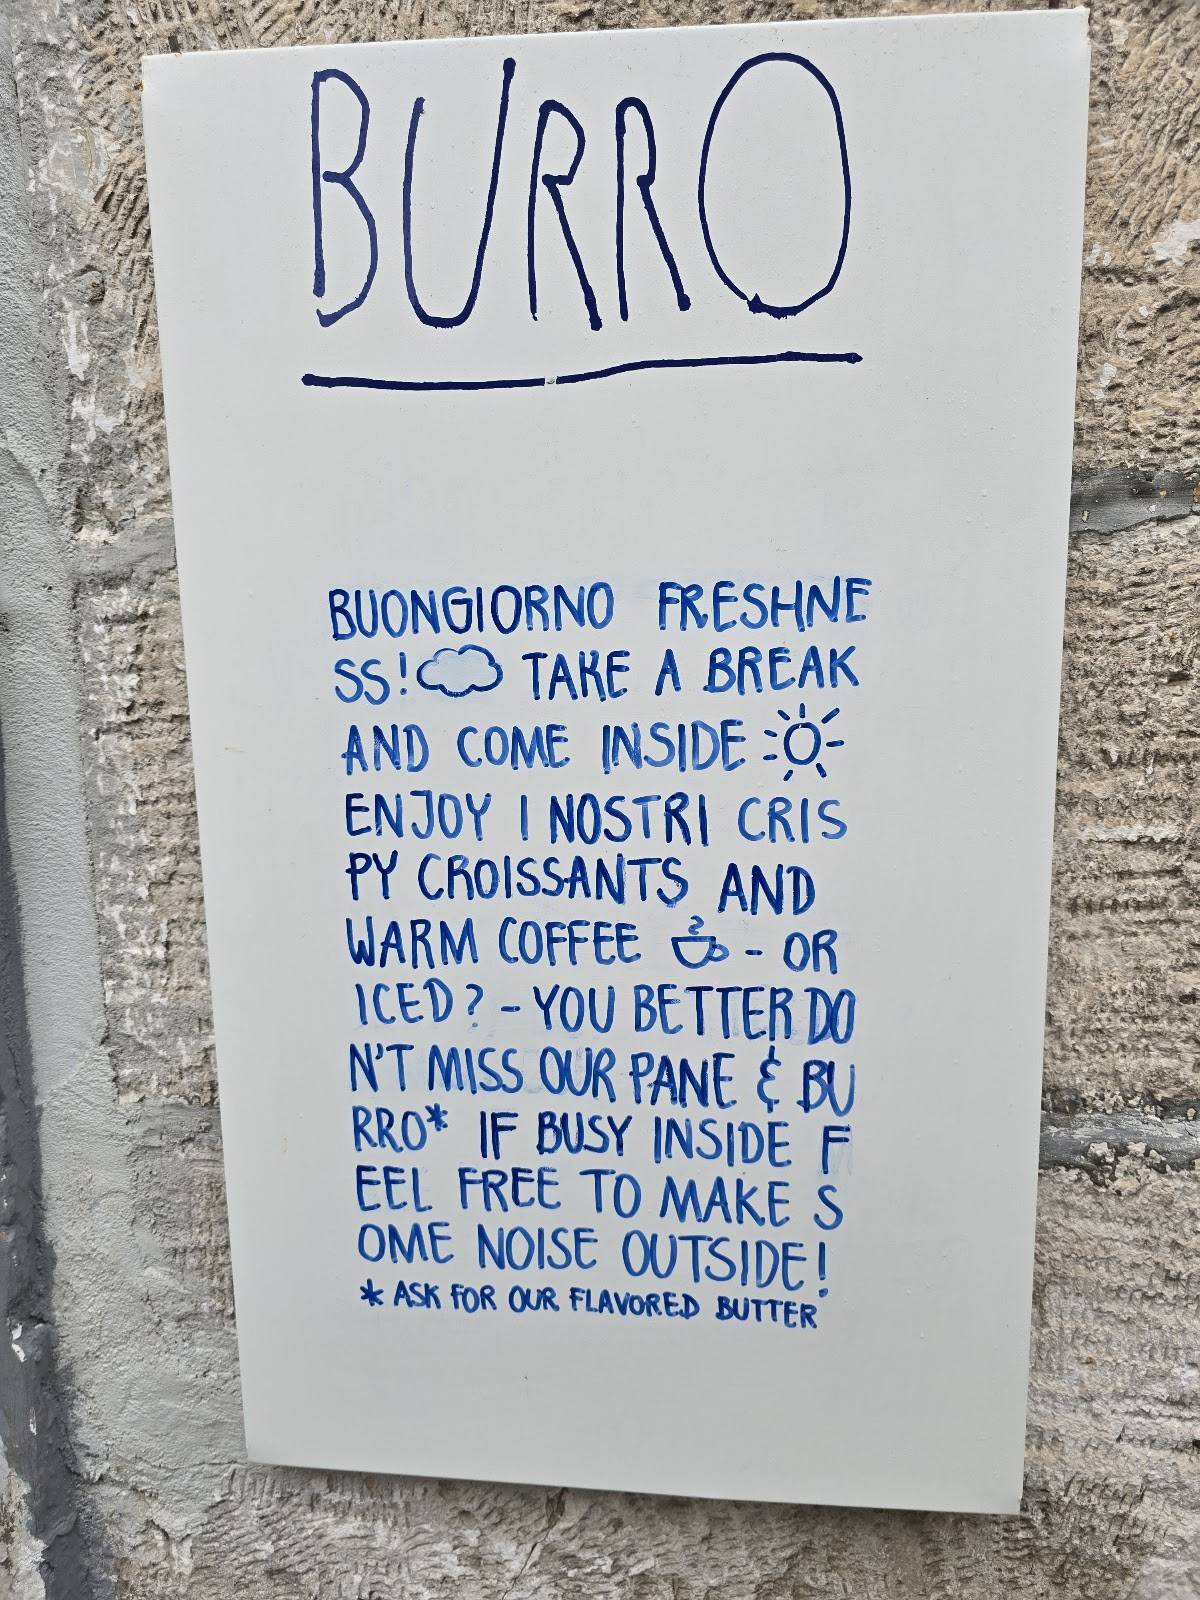 BURRO
BUONGIORNO FRESHNE
SS! TAKE A BREAK
AND COME INSIDE
ENJOY I NOSTRI CRIS
PY CROISSANTS AND
WARM COFFEE - OR
ICED? - YOU BETTER DO
N'T MISS OUR PANE & BU
RRO* IF BUSY INSIDE F
EEL FREE TO MAKE S
OME NOISE OUTSIDE!
* ASK FOR OUR FLAVORED BUTTER